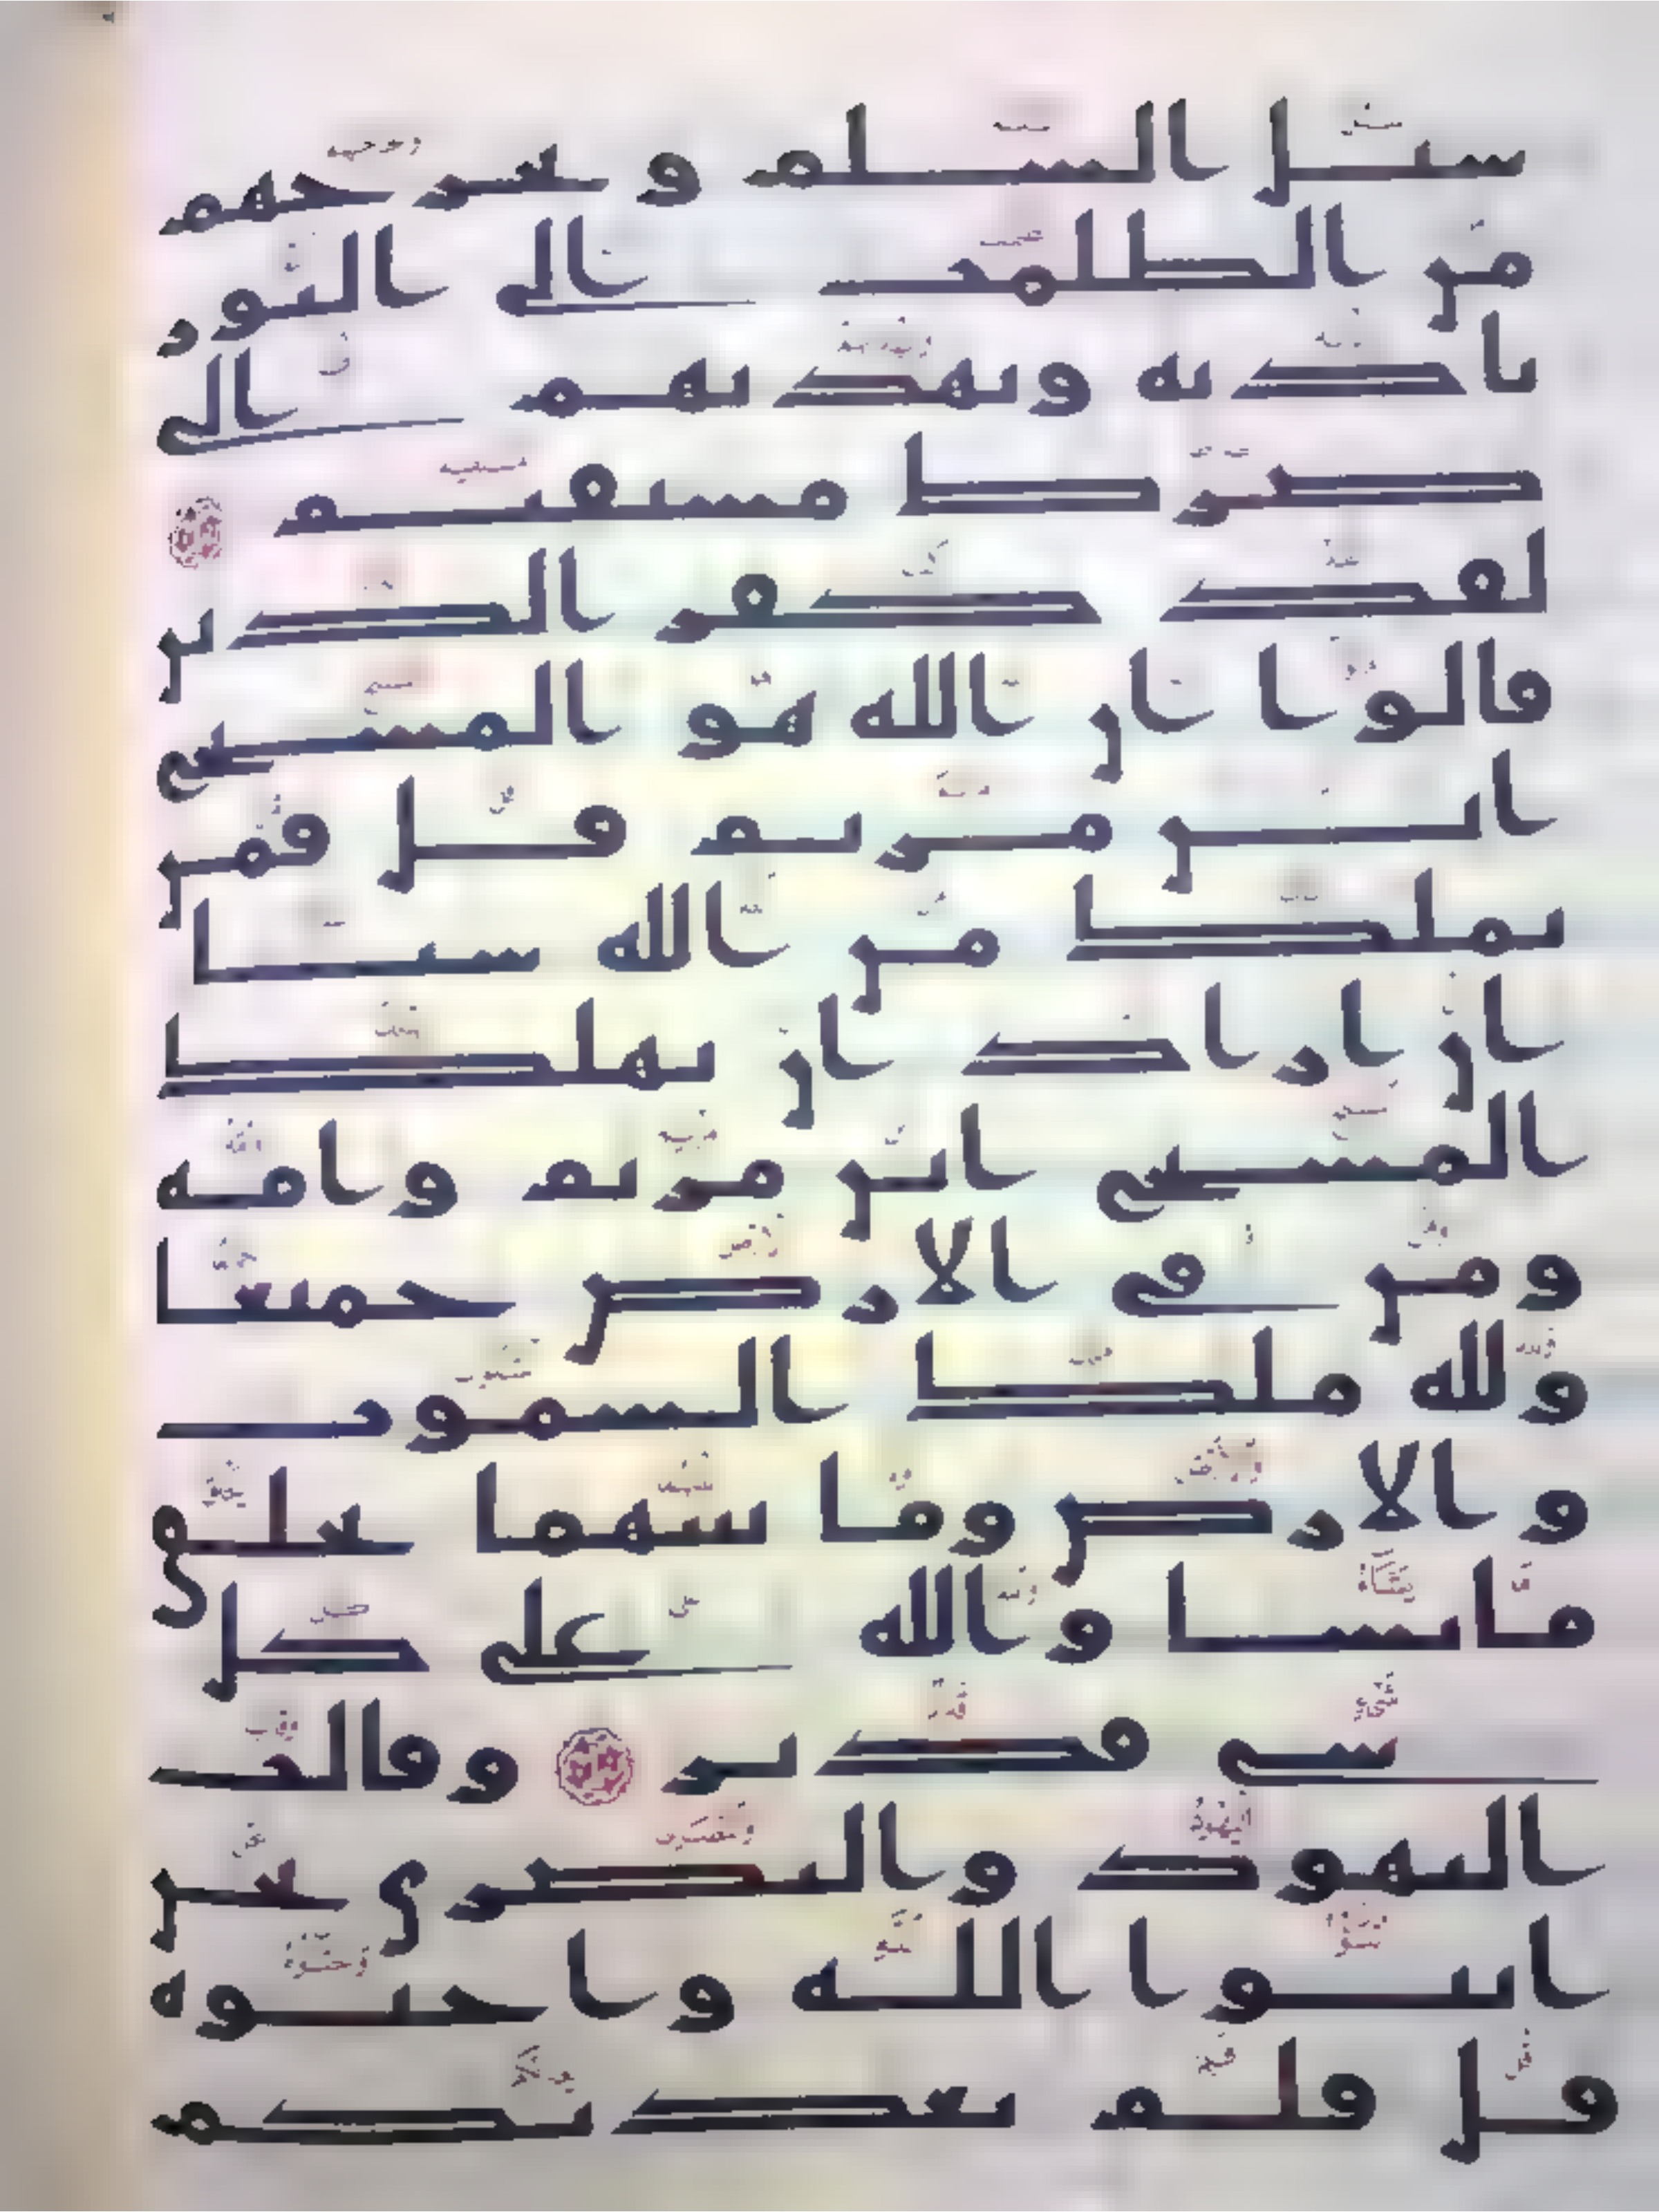 سبل السلم و يخرجهم
من الظلمت الى النور
باذنه ويهديهم الى
صرط مستقيم
لقد كفر الذين
قالوا ان الله هو المسيح
ابن مريم قل فمن
يملك من الله شيا
ان اراد ان يهلك
المسيح ابن مريم وامه
ومن فى الارض جميعا
ولله ملك السموت
والارض وما بينهما يخلق
ما يشا والله على كل
شى قدير وقالت
اليهود والنصرى نحن
ابنوا الله واحبوه
قل فلم يعذبكم